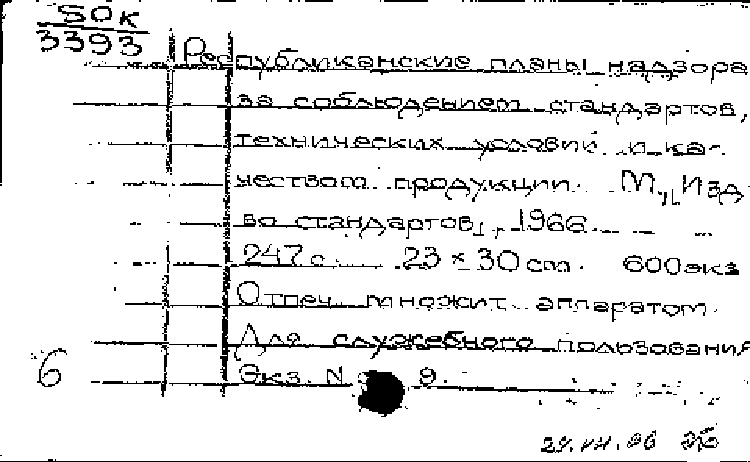 50к
3393
Республиканские планы надзора
за соблюдением стандартов,
технических условий и ка-
чеством продукции. М., Изд
во стандартов, 1966.
247 с. 23 × 30 cm. 600 экз
Отпеч. множит. аппаратом.
Для служебного пользования
6
Экз. N 9.